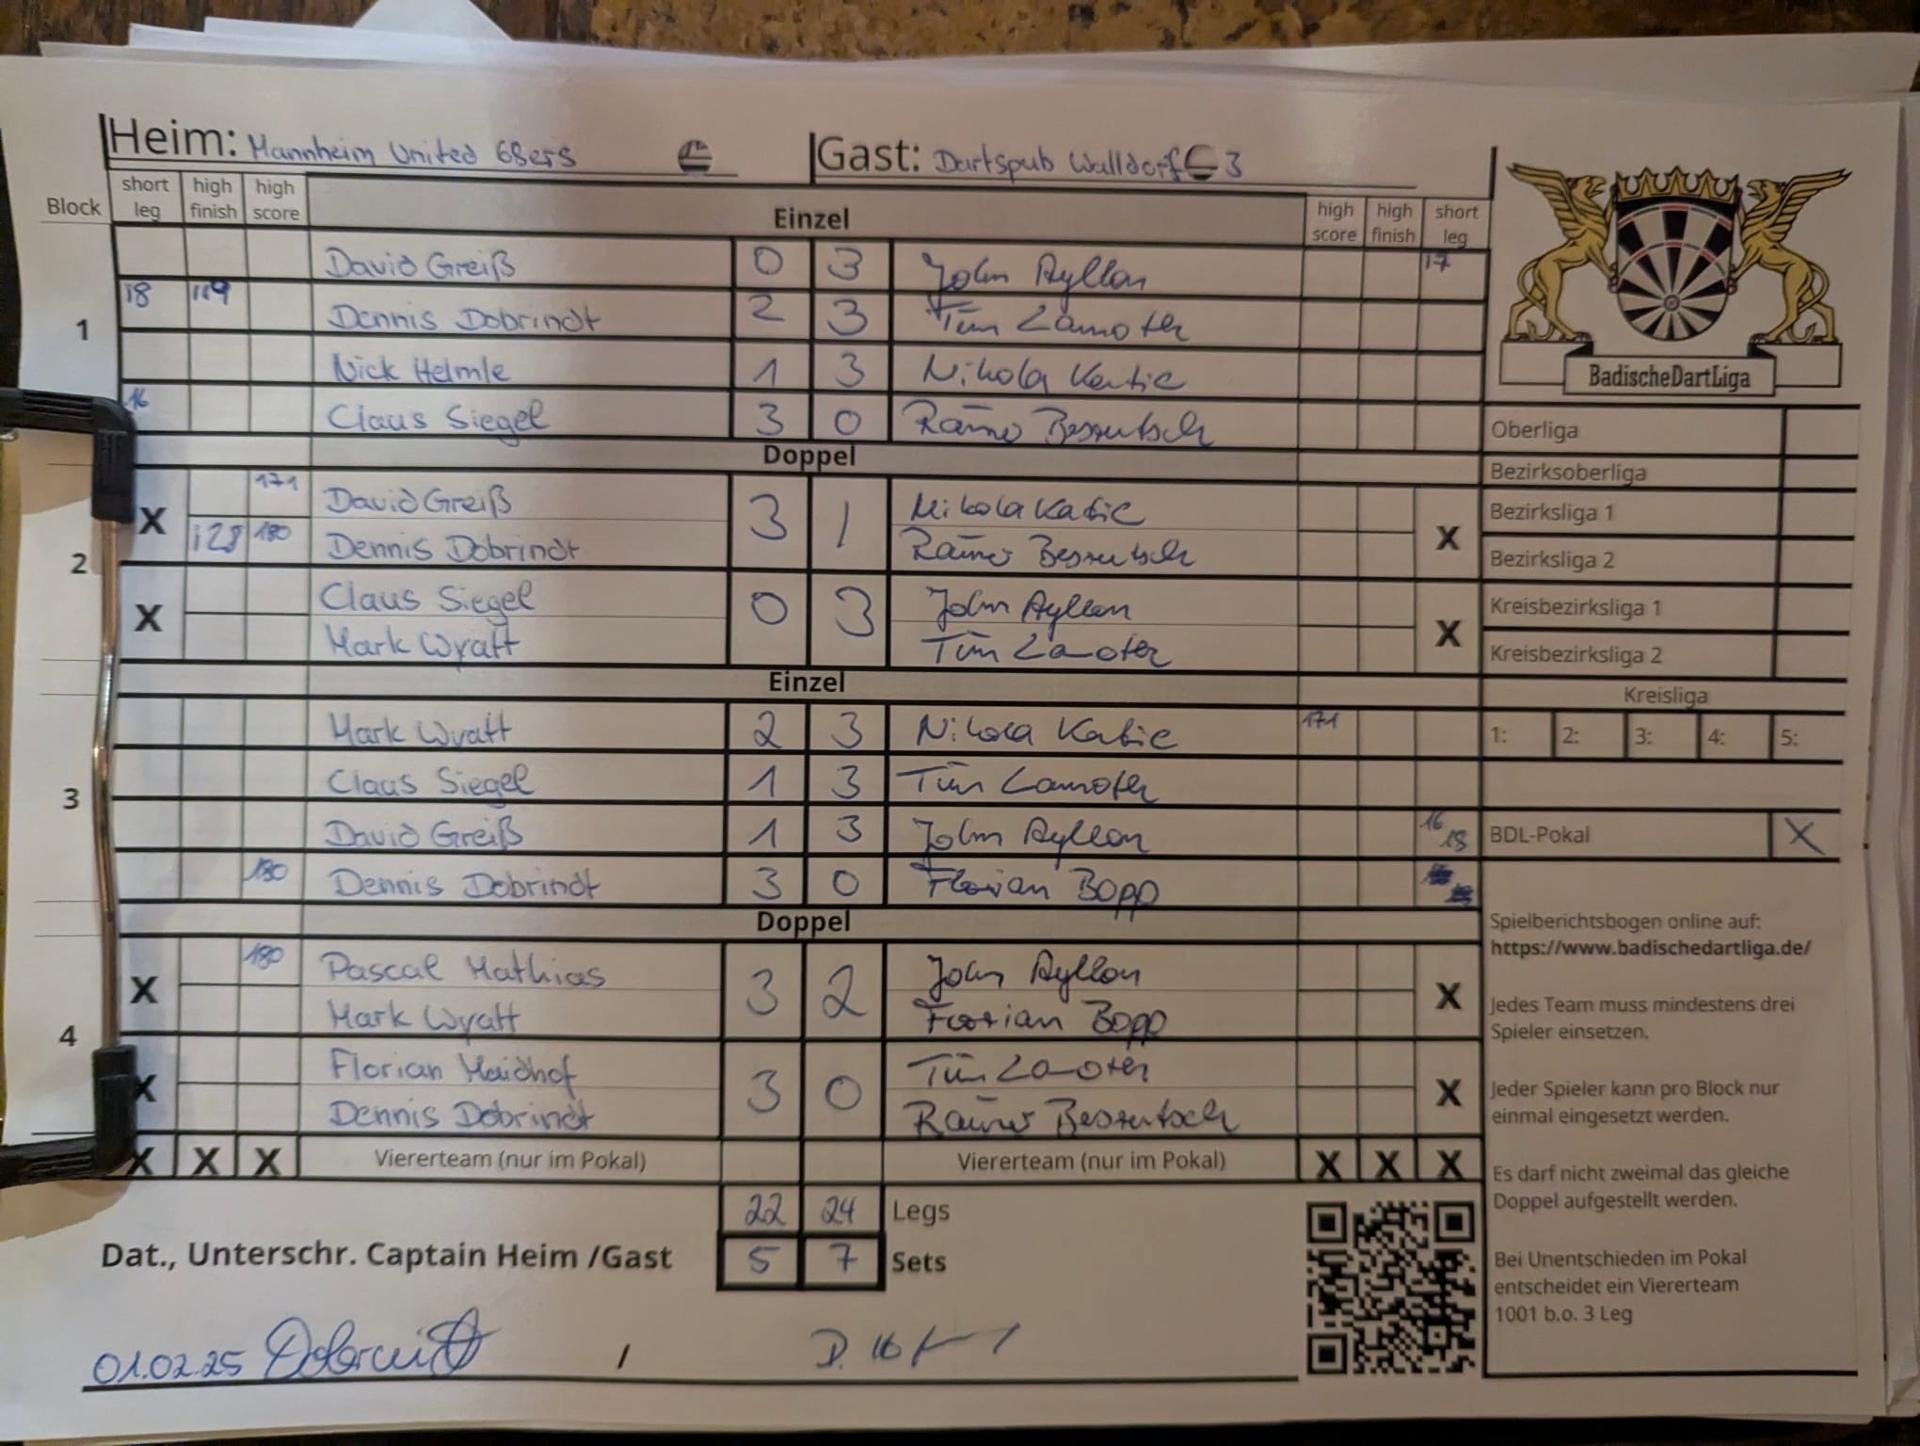 Heim: Mannheim United 68ers Gast: Dartspub Walldorf 3
Block short leg high finish high score Einzel high score high finish short leg
1
David Greiß 0 3 John Ayllon 17
18 119 Dennis Dobrindt 2 3 Tim Lamoth
Nick Helmle 1 3 Nikola Katic
16 Claus Siegel 3 0
Doppel
2
X 171 David Greiß 3 1 Nikola Katic X
128 180 Dennis Dobrindt
X Claus Siegel 0 3 John Ayllon X
Mark Wyatt Tim
Einzel
3
Mark Wyatt 2 3 Nikola Katic 171
Claus Siegel 1 3 Tim
David Greiß 1 3 John Ayllon 16 18
180 Dennis Dobrindt 3 0 Florian Bopp
Doppel
4
X 180 Pascal Mathias 3 2 John Ayllon X
Mark Wyatt Florian Bopp
X Florian Maidhof 3 0 Tim X
Dennis Dobrindt
X X X Viererteam (nur im Pokal) Viererteam (nur im Pokal) X X X
22 24 Legs
5 7 Sets
Dat., Unterschr. Captain Heim /Gast
01.02.25 /
BadischeDartLiga
Oberliga
Bezirksoberliga
Bezirksliga 1
Bezirksliga 2
Kreisbezirksliga 1
Kreisbezirksliga 2
Kreisliga
1: 2: 3: 4: 5:
BDL-Pokal X
Spielberichtsbogen online auf:
https://www.badischedartliga.de/
Jedes Team muss mindestens drei
Spieler einsetzen.
Jeder Spieler kann pro Block nur
einmal eingesetzt werden.
Es darf nicht zweimal das gleiche
Doppel aufgestellt werden.
Bei Unentschieden im Pokal
entscheidet ein Viererteam
1001 b.o. 3 Leg